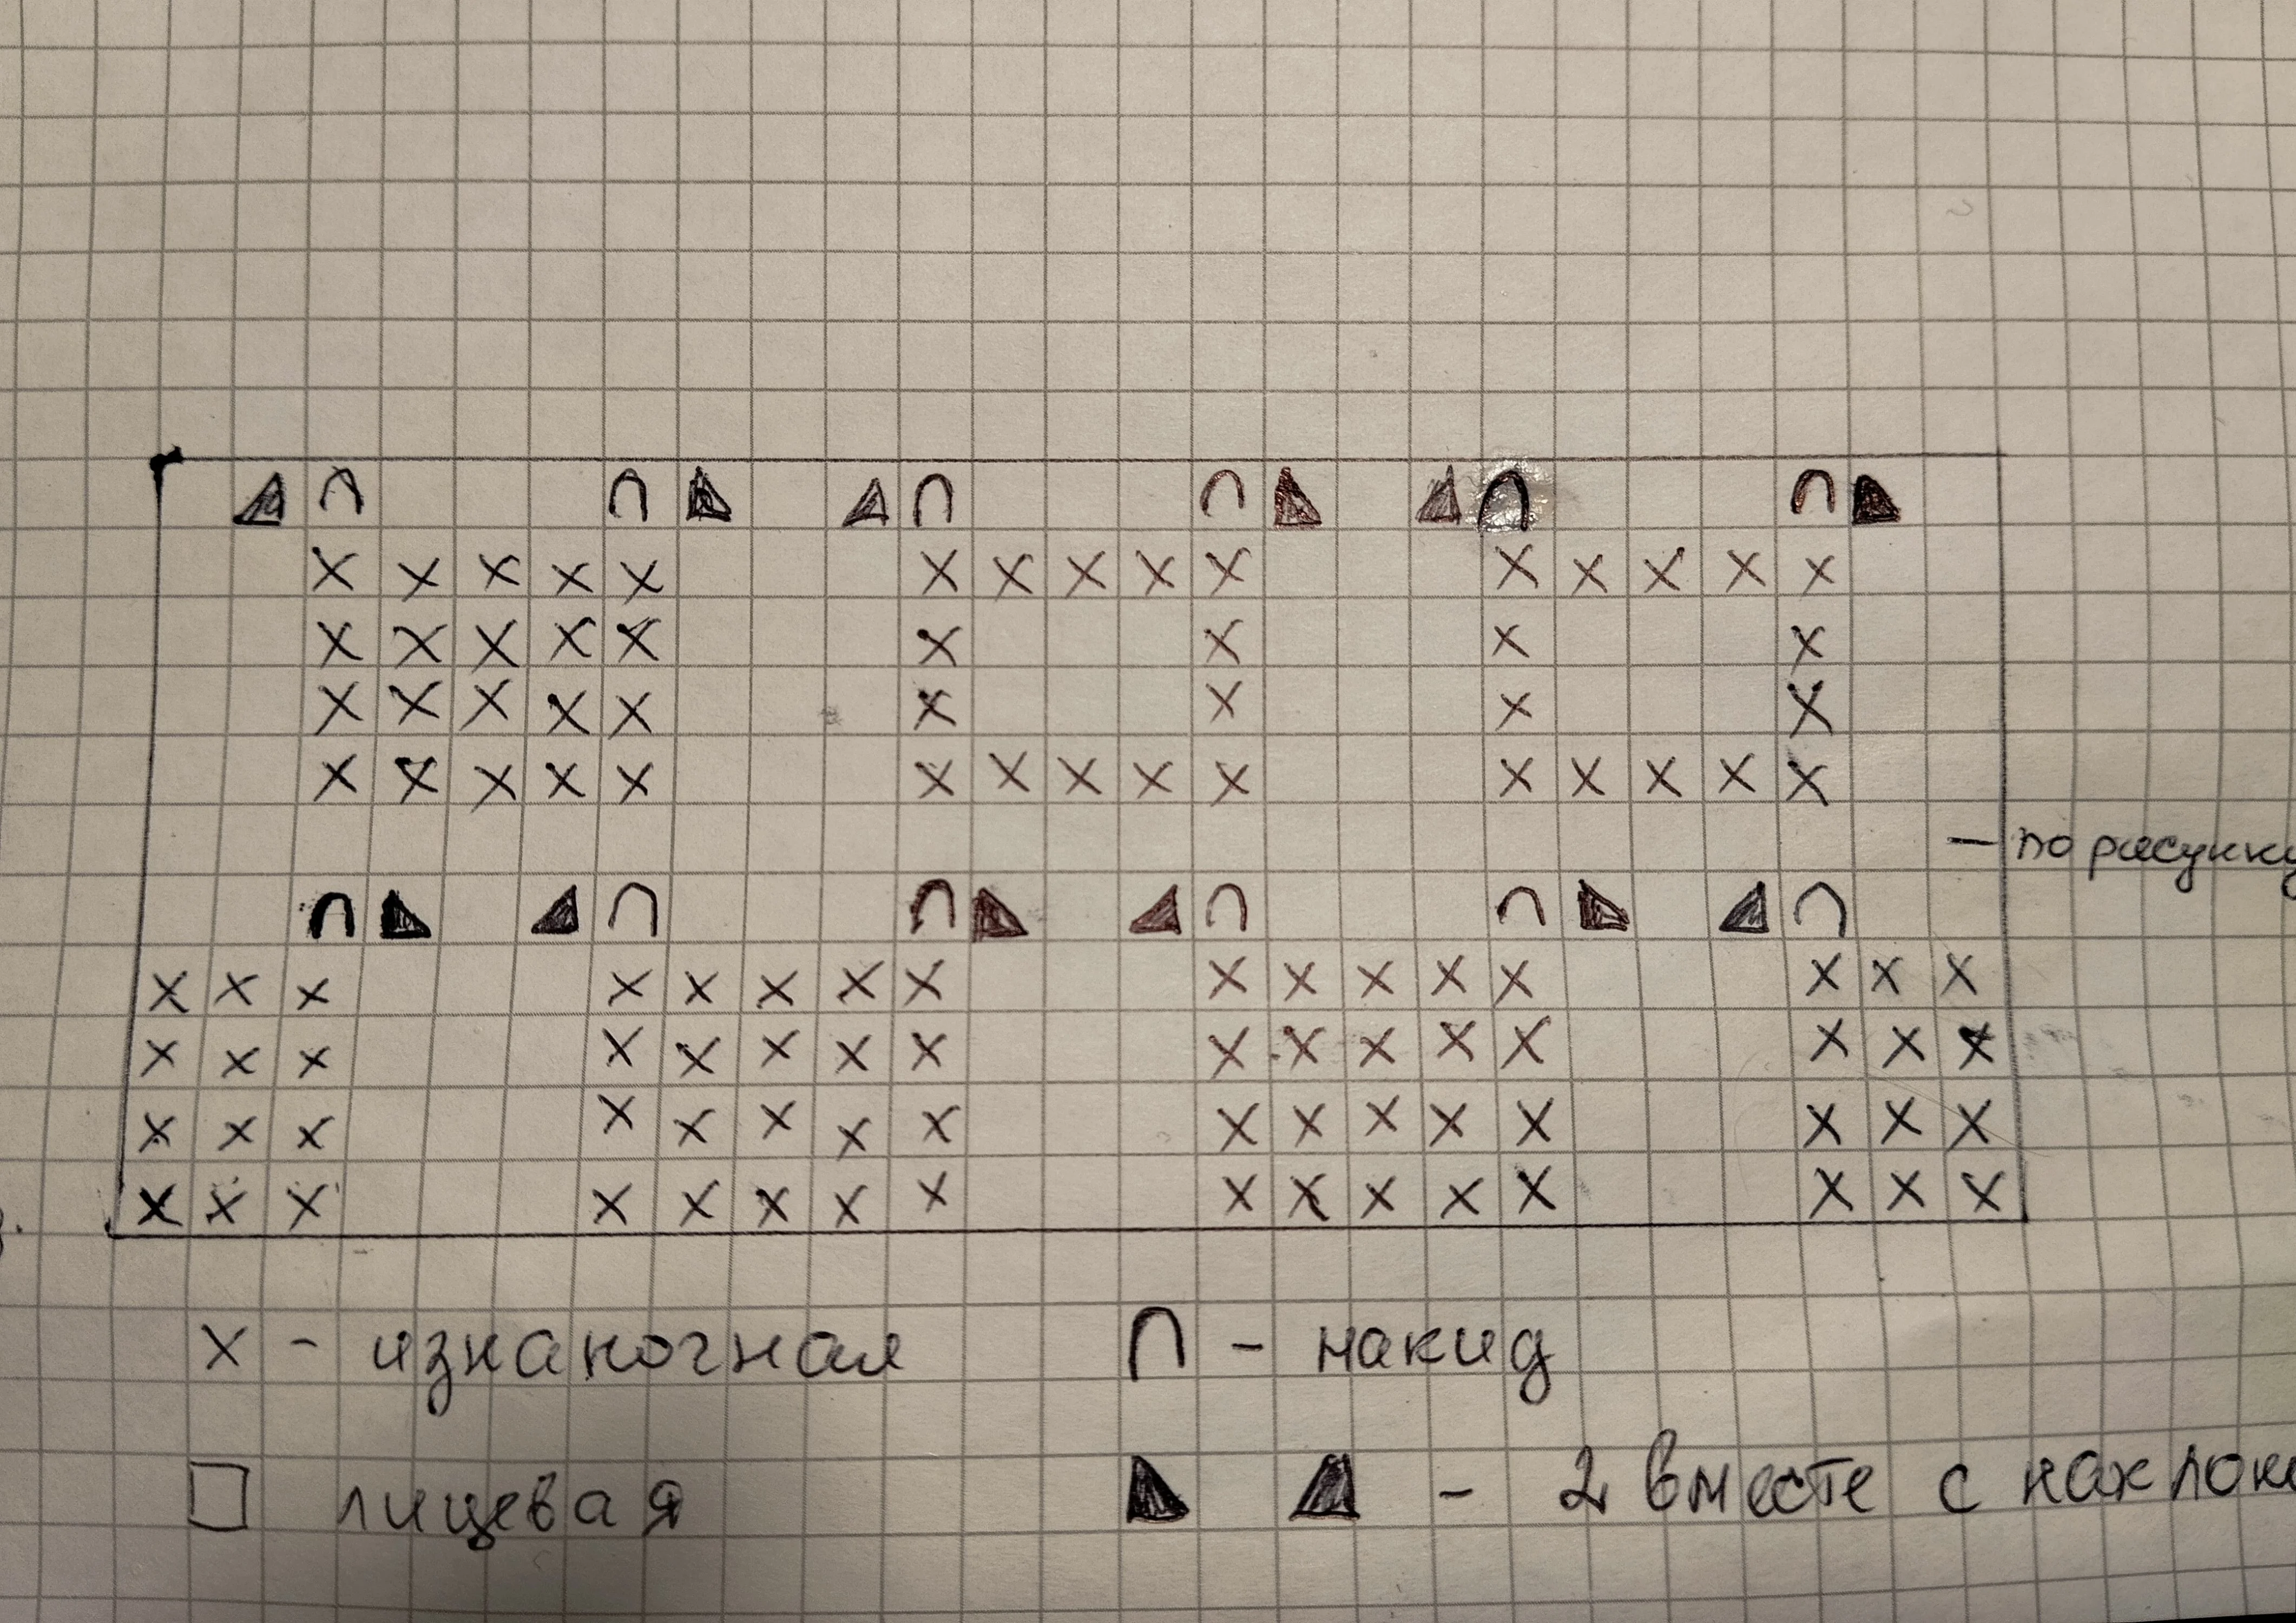 — по рисунку
x - изнаночная
∩ - накид
□ лицевая
◣ ◢ - 2 вместе с